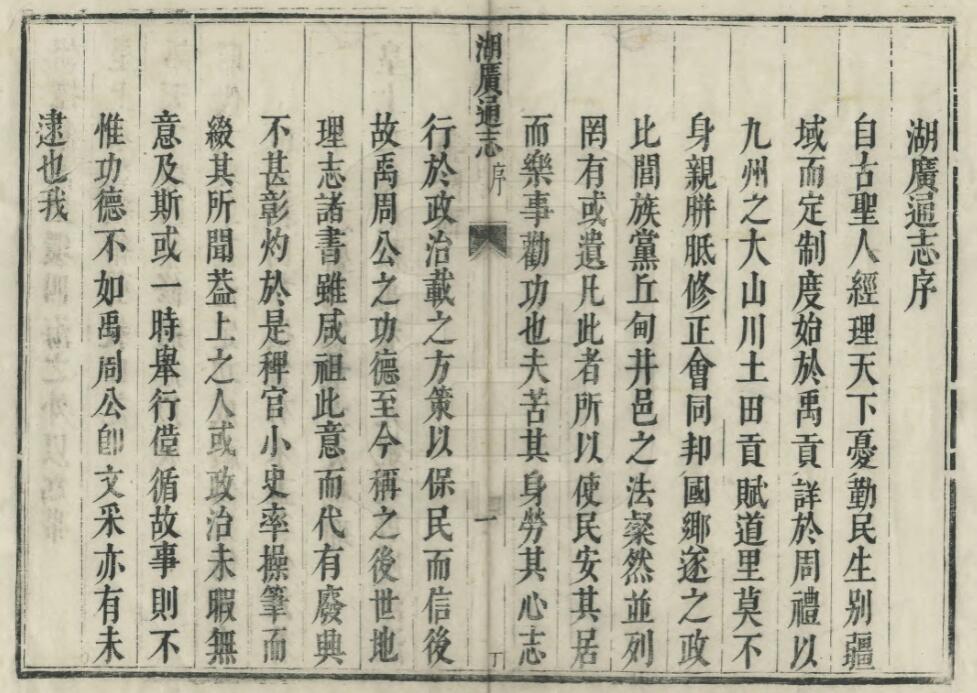 湖廣通志序
自古聖人經理天下憂勤民生別疆
域而定制度始於禹貢詳於周禮以
九州之大山川土田貢賦道里莫不
身親胼胝修正會同邦國鄉遂之政
比閭族黨丘甸井邑之法粲然並列
罔有或遺凡此者所以使民安其居
而樂事勸功也夫苦其身勞其心志
湖廣通志 序 一
行於政治載之方策以保民而信後
故禹周公之功德至今稱之後世地
理志諸書雖咸祖此意而代有廢興
不甚彰灼於是稗官小史率操筆而
綴其所聞葢上之人或政治未暇無
意及斯或一時舉行僅循故事則不
惟功德不如禹周公卽文采亦有未
逮也我